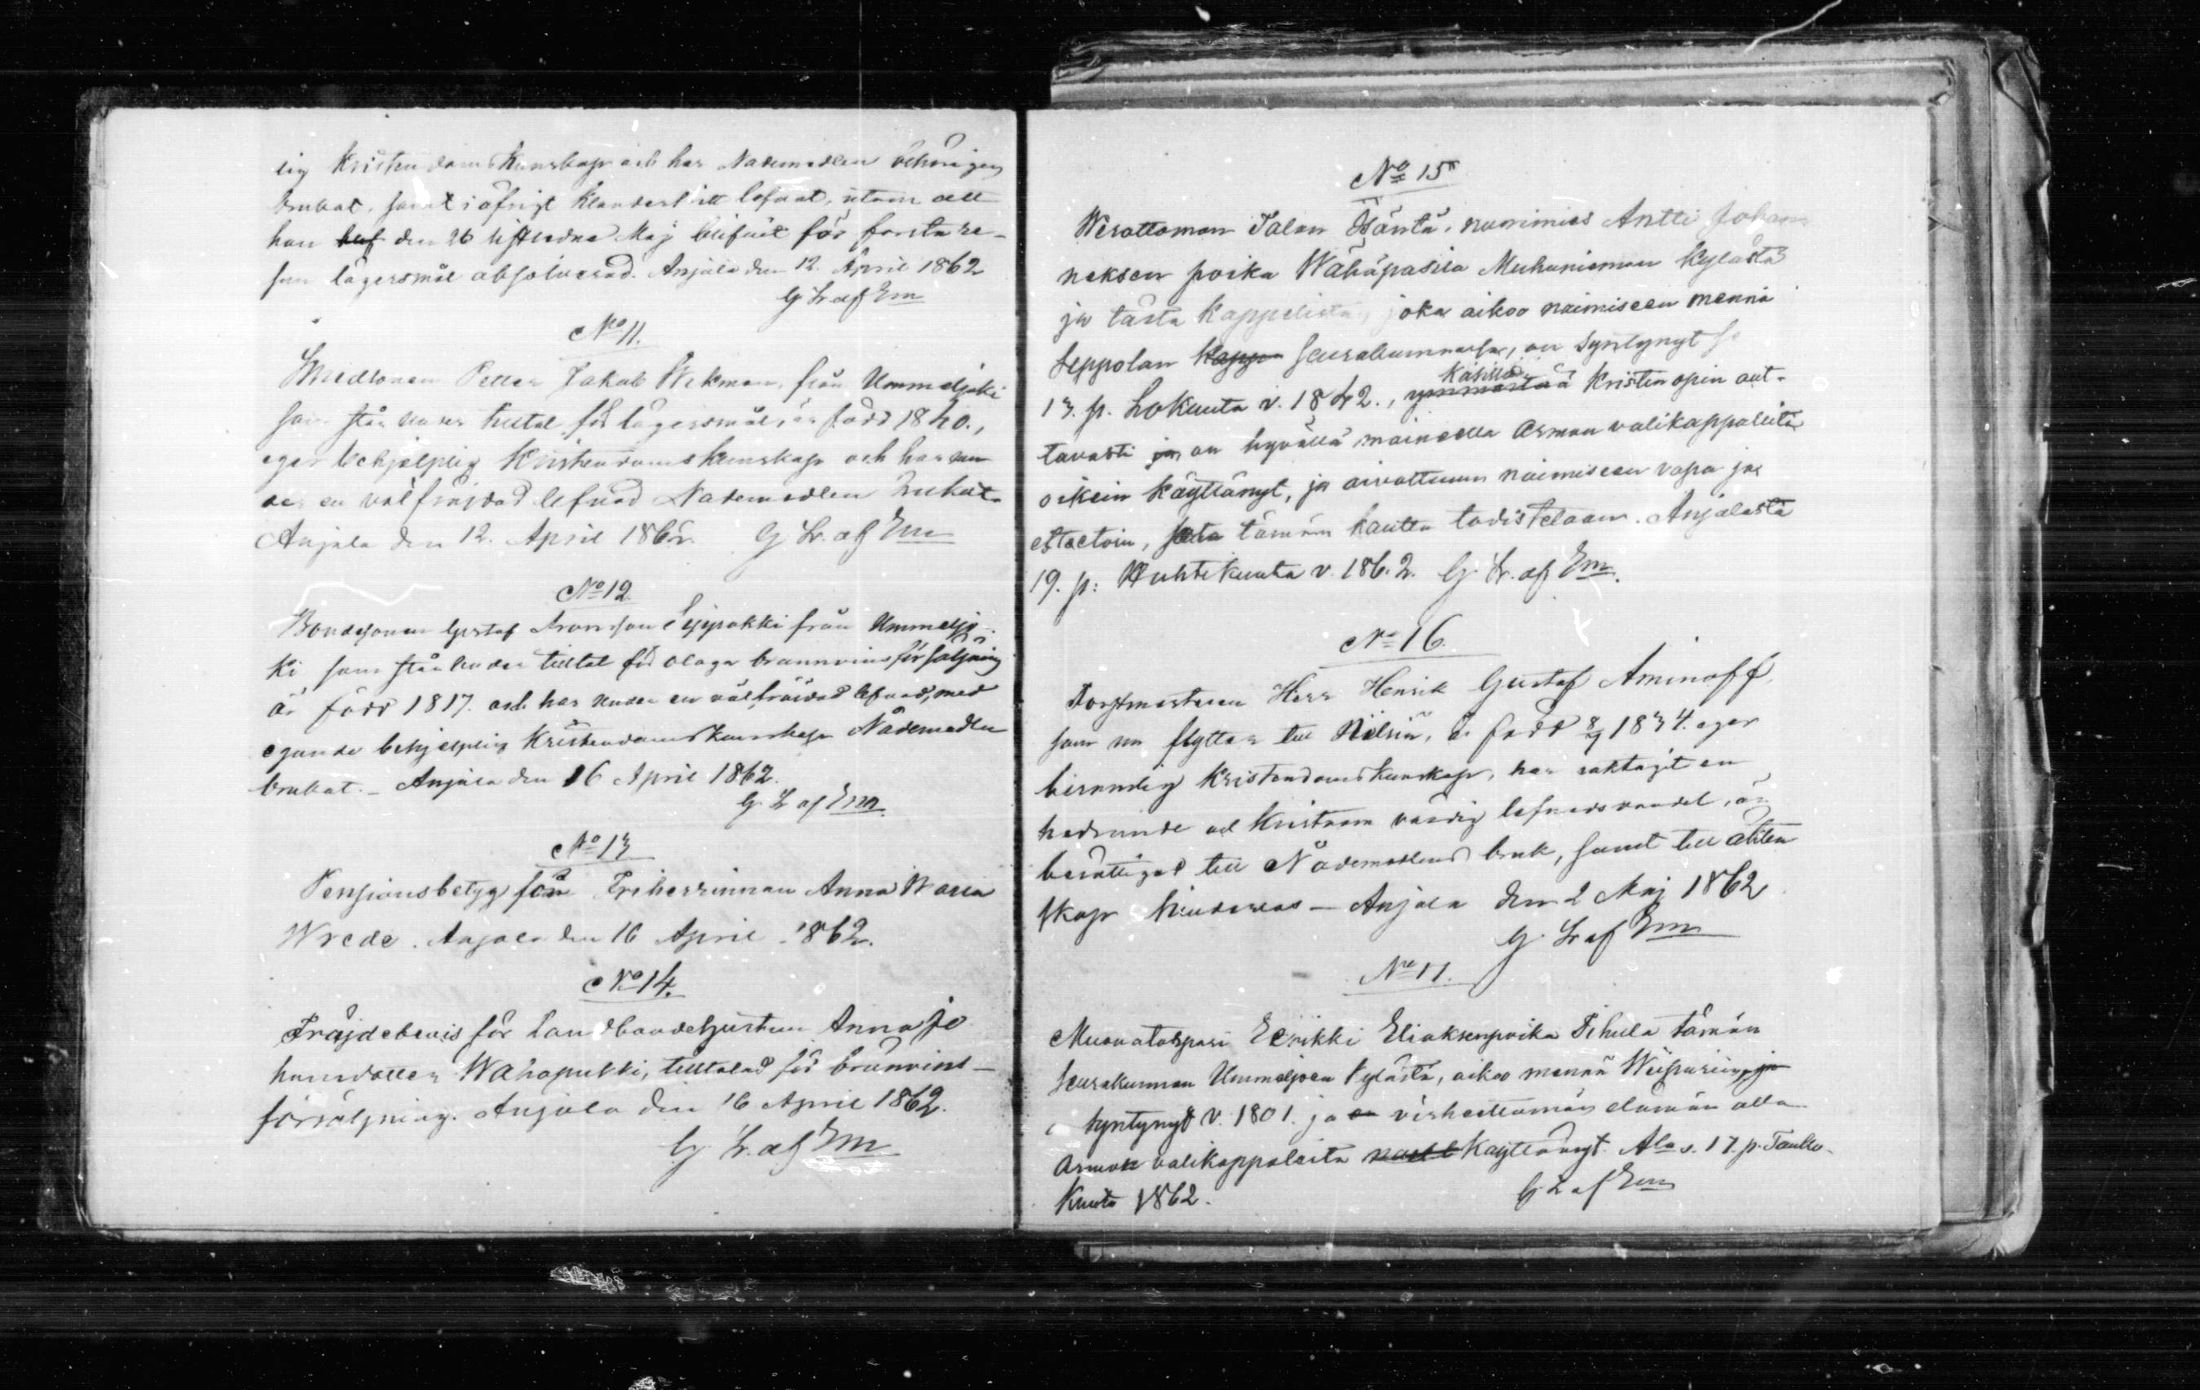 lig Kristendomskunskap och har Nademedlen behörigen
brukat, samt i öfrigt klanderfritt lefvat, utom att
han den 26 sistledne Maj blifvit för första re-
san lägersmål absolverad. Anjala den 12. April 1862
G Lr af Em
No 11.
Smedsonen Petter Jakob Wekman, från Ummeljoki
som står under tilltal för lägersmål, är född 1840.,
eger behjelplig Kristendomskunskap och har un
der en välfräjdad lefnad Nademedlen brukat.
Anjala den 12. April 1862. G Lr. af Em
No 12
Bondesonen Gustaf Aronsson Seppokki från Ummeljo
ki som står under tilltal för olaga brännvinsförsäljning
är född 1817. och har under en välfräjdad lefnad, med
egande behjelplig Kristendomskunskap Nådemedlen
brukat. - Anjala den 16 April 1862.
G. Lr af Em
No 13
Pensionsbetyg för Friherrinnan Anna Maria
Wrede. Anjala den 16 April 1862.
No 14.
Fräjdebevis för Landbondehustrun Anna Jo
hansdotter Wahapukki, tilltalad för brännvins-
försäljning. Anjala den 16 April 1862.
G Lr. af Em
No 15
Werottoman Talon Isäntä, nuorimies Antti Johan
neksen poika Wähäpasila Muhniemen Kylästä
ja tästä Kappelista, joka aikoo naimiseen mennä
Seppolan Kapp seurakunnassa, on syntynyt
13. p. Lokuuta v. 1842., ymmärtää Käsittää Kristin opin aut-
tavasti ja on hyvällä maineella Armon välikappaleita
oikein käyttänyt, ja aivottuun naimiseen vapa ja
esteetöin, tämän kautta todistetaan. Anjalasta
19. p: Huhtikuuta v. 1862. G. Lr. af Em.
No 16.
Forstmästaren Herr Henrik Gustaf Aminoff,
som nu flyttar till Nilsiä, är född 8/9 1834. eger
berömlig Kristendomskunskap, har iakttagit en
hedrande och Kristnom värdig lefnadsvandel, är
berättigad till Nådemedlens bruk, samt till äkten
skap hinderlös - Anjala den 2 Maj 1862
G. Lr af Em
No 17.
Muonatorpari Eerikki Eliaksenpoika Tihula tämän
seurakunnan Ummeljoen Kylästä, aikoo mennä Wiipuriin, ja
syntynyt v. 1801. ja on virheettömän elämän alla
Armon välikappaleita käyttänyt. Ala s. 17. p. Touko-
Kuuta 1862. G Lr af Em